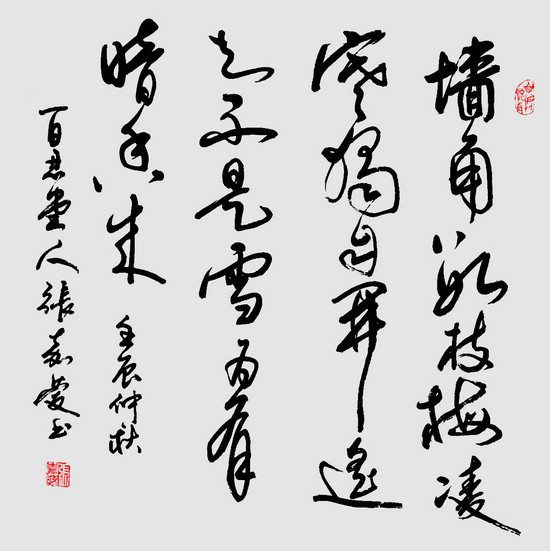 墙角数枝梅凌
寒獨自開遥
知不是雪为有
暗香来
壬辰仲秋
百忍堂人張嘉书